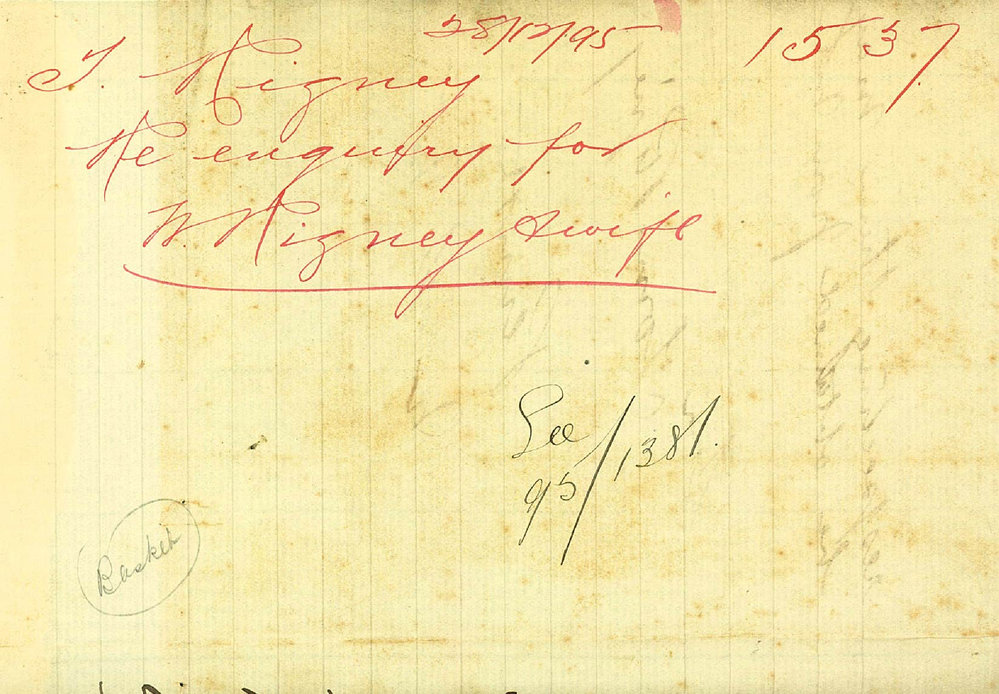 28/12/95
1537
T Rigney
Re enquiry for
W. Rigney & wife
See
95/1381.
Basket